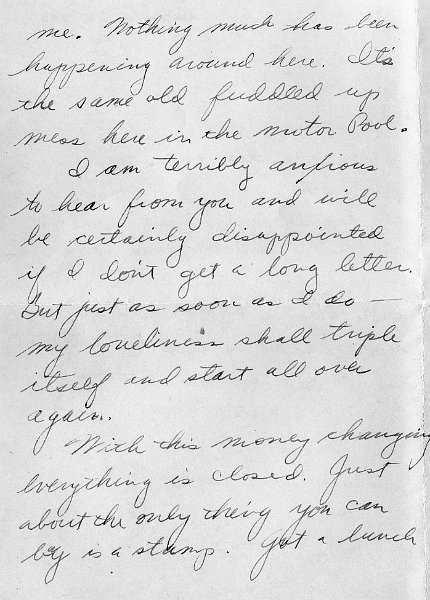 me. Nothing much has been
happening around here. It's
the same old fuddled up
mess here in the motor Pool.
I am terribly anxious
to hear from you and will
be certainly disappointed
if I don't get a long letter.
But just as soon as I do —
my loneliness shall triple
itself and start all over
again.
With this money changing
everything is closed. Just
about the only thing you can
by is a stamp. Got a lunch